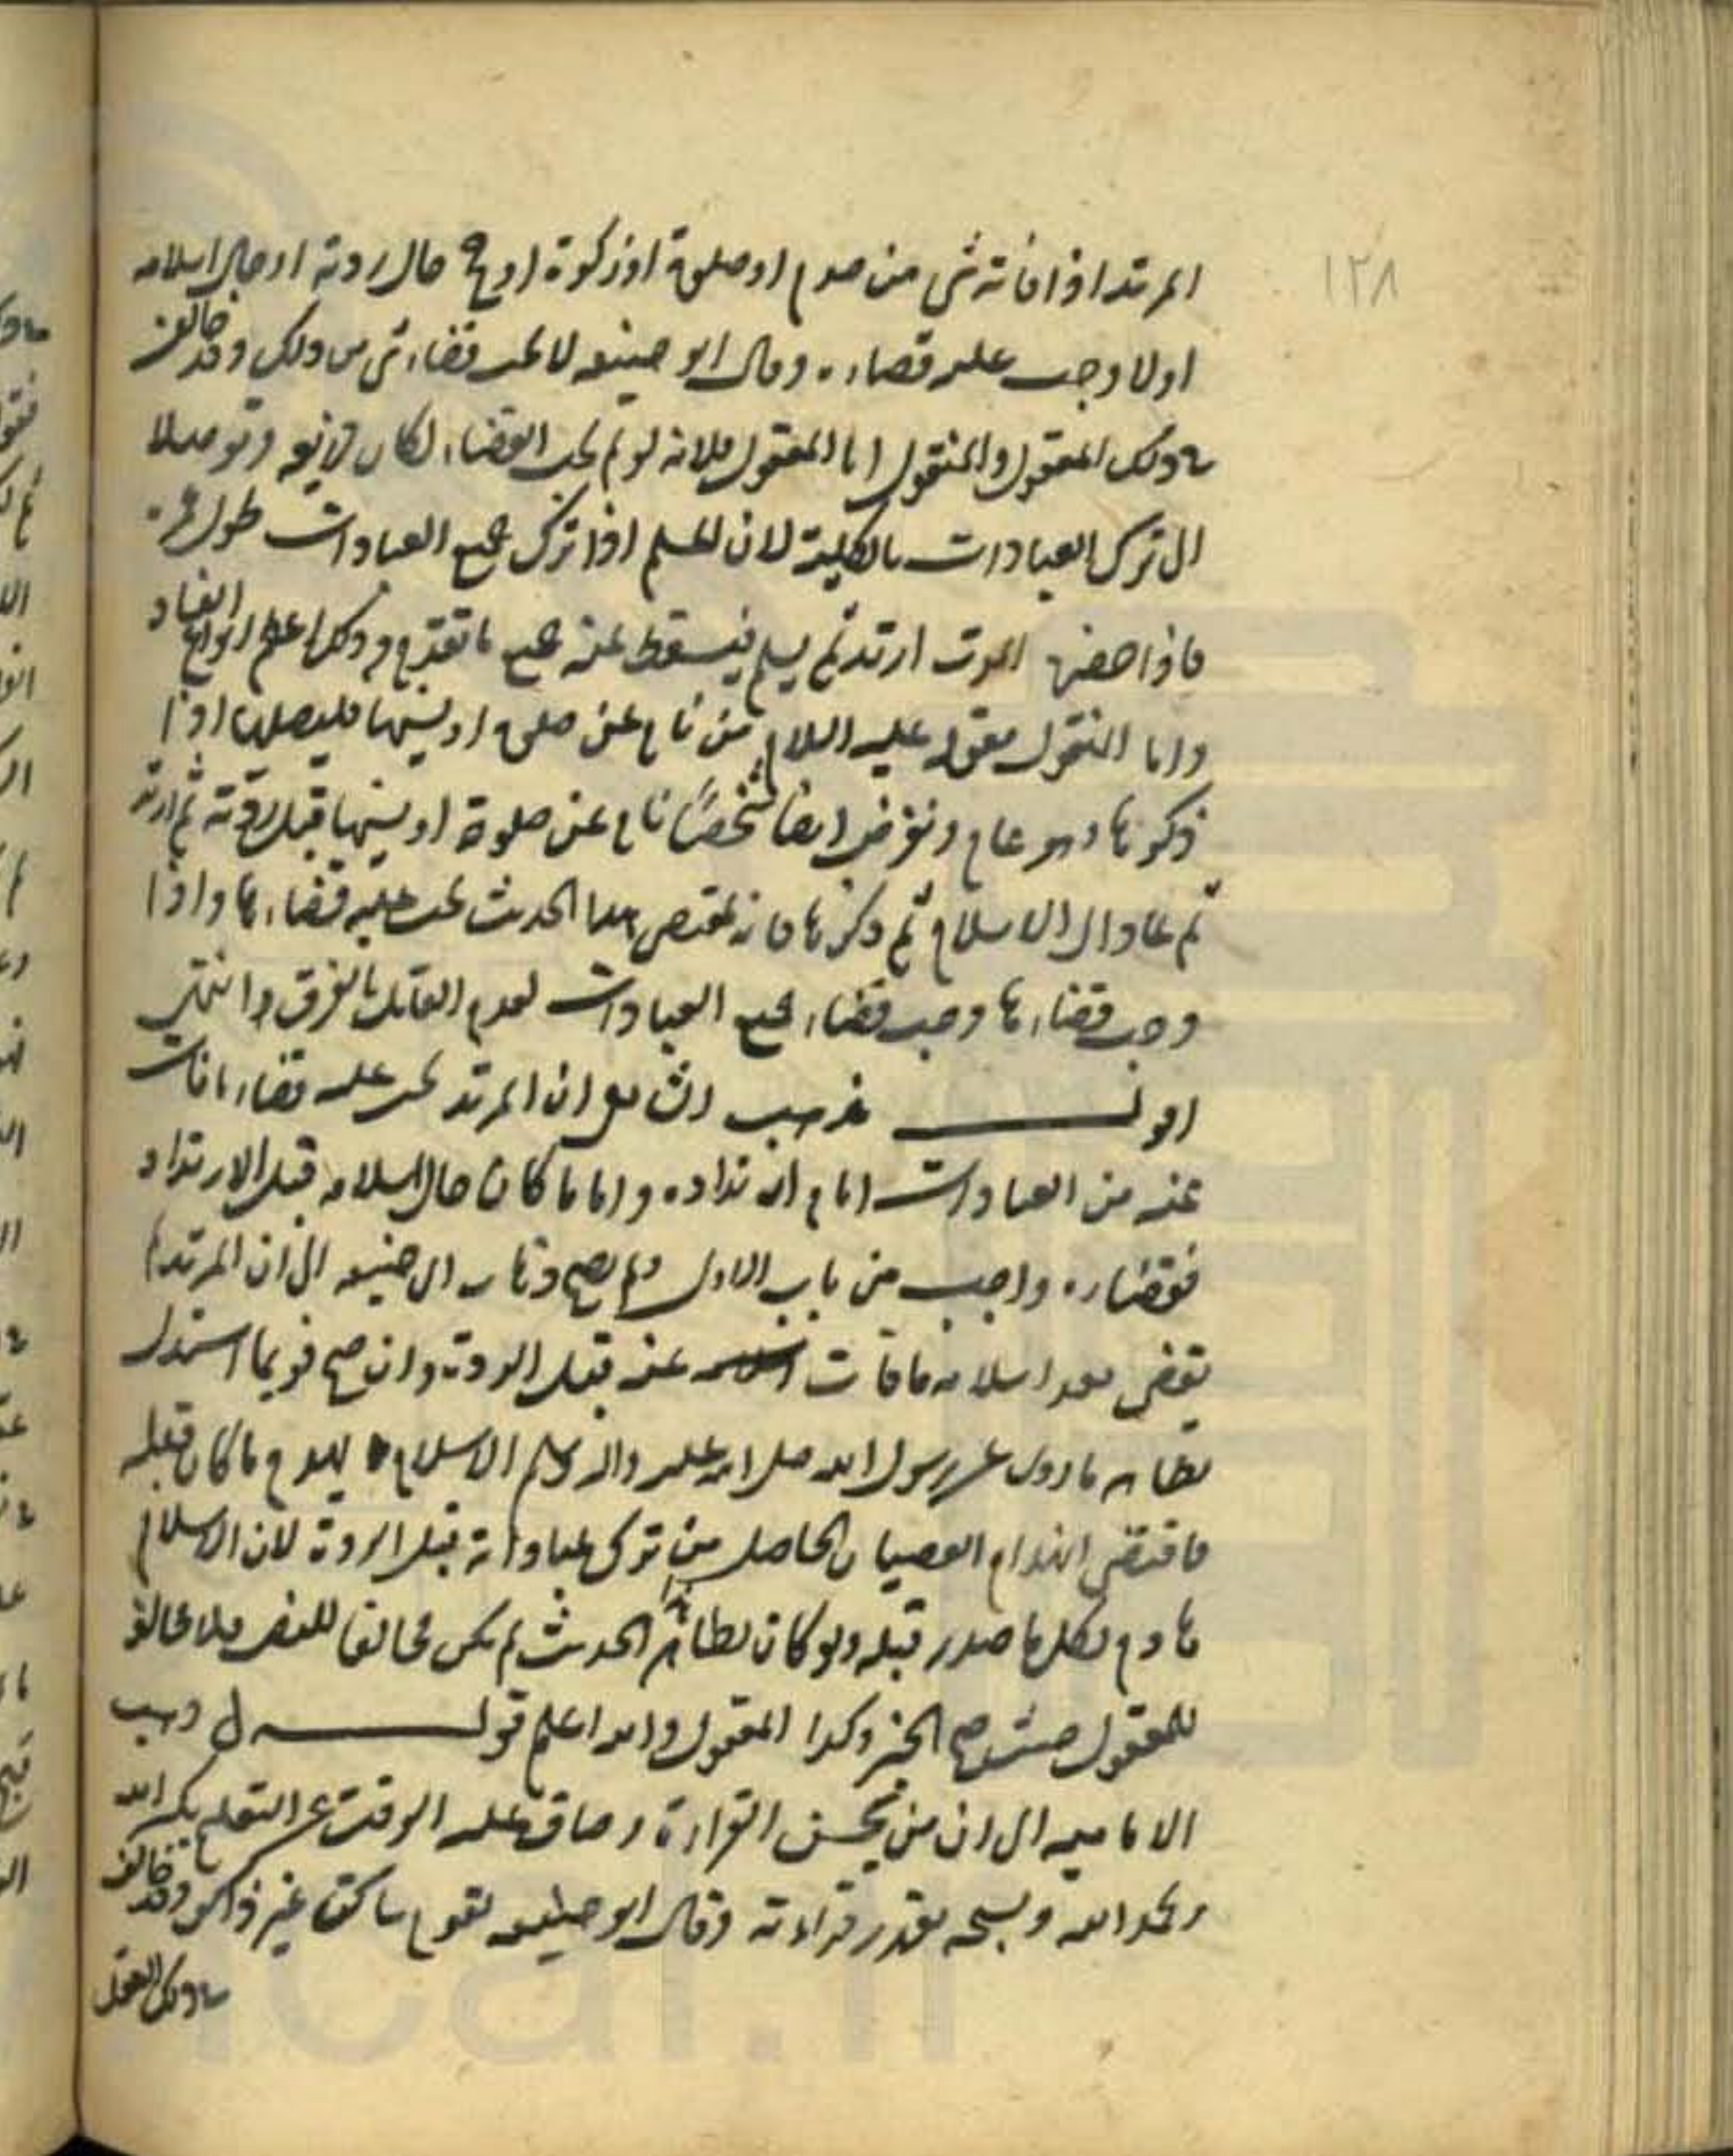 ١٢٨
المرتد اذا فاته شي من صوم او صلوة او زكوة او حج حال ردته او حال اسلامه
اولا وجب عليه قضاءه وقال ابو حنيفه لا يجب قضاء شي من ذلك وقد خالف
في ذلك المعقول والمنقول اما المعقول فلانه لو لم يجب القضاء لكان ذريعه وتوصلا
الى ترك العبادات بالكلية لان المسلم اذا ترك جميع العبادات طول عمره
فاذا حضره الموت ارتد ثم يسلم فيسقط عنه جميع ما تقدم وذلك اعظم انواع الفساد
واما المنقول فقوله عليه السلام من نام عن صلوة او نسيها فليصلها اذا
ذكرها وهو عام ونفرض ايضا شخصًا نام عن صلوة او نسيها قبل ردته ثم ارتد
ثم عاد الى الاسلام ثم ذكرها فانه بمقتضى هذا الحديث يجب عليه قضاءها واذا
وجب قضاءها وجب قضاء جميع العبادات لعدم القائل بالفرق وانتهى
اقول مذهب الشافعي ان المرتد يجب عليه قضاء ما فات
عنه من العبادات ايام ارتداده واما ما كان حال اسلامه قبل الارتداد
فقضاءه واجب من باب الاولى ولم يصح ذهاب ابي حنيفه الى ان المرتد لا
يقضي بعد اسلامه ما فات عنه قبل الردة وان صح فربما استدل
بظاهر ما روي عن رسول الله صلى الله عليه واله وسلم الاسلام يهدم ما كان قبله
فاقتضى انهدام العصيان الحاصل من ترك عباداته قبل الردة لان الاسلام
هادم لكل ما صدر قبله ولو كان بظاهر الحديث لم يكن مخالفا للنص فلا مخالفة
للمعقول حيث صح الخبر وكذا المنقول والله اعلم قوله ذهب
الاماميه الى ان من يحسن القراءة وضاق عليه الوقت عن التعلم يكبر الله
ويحمد الله ويسبحه بقدر قراءته وقال ابو حنيفه يقوم ساكتا غير ذاكر وقد خالف
في ذلك العقل